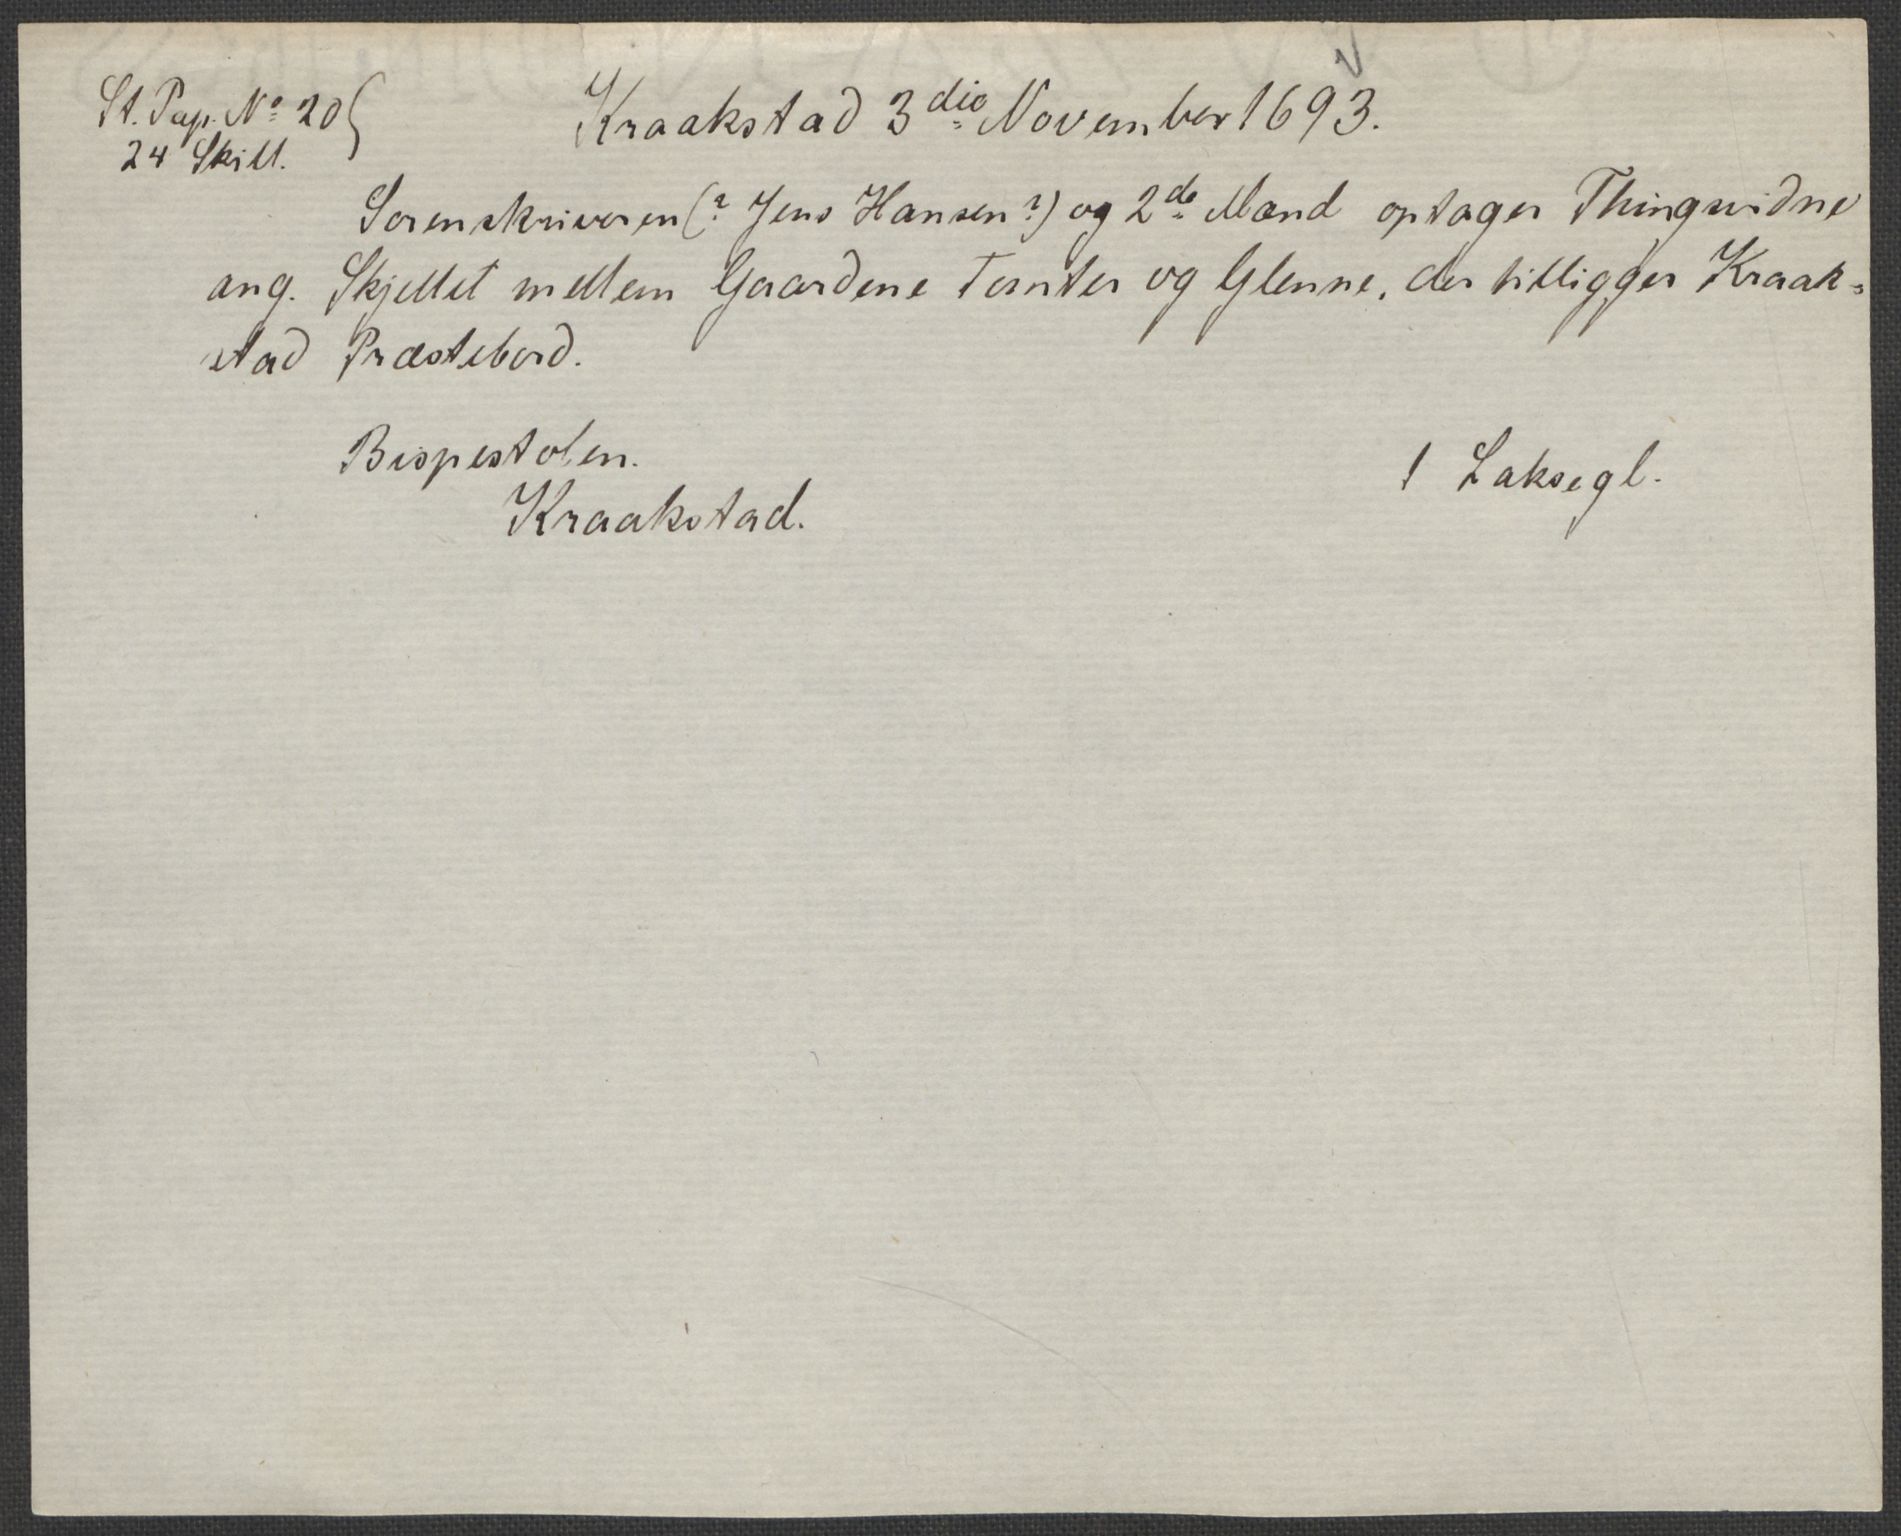 St. Pap. No 20
24 Skill.
Kraakstad 3die November 1693.
Sorenskriveren (? Jens Hansen?) og 2de Mænd optager Thingsvidne
ang. Skjellet mellem Gaardene Tomter og Glenne, der tilligger Kraak-
stad Præstebord.
Bispestolen.
Kraakstad.
1 Laksegl.